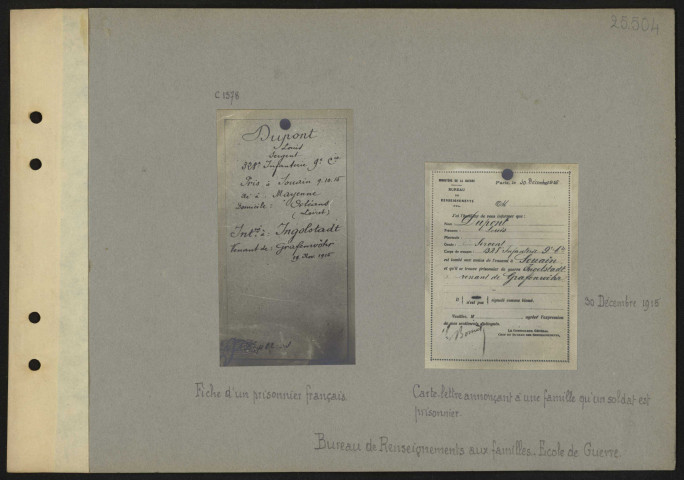 25.504
C 1378
Dupont
Louis
Sergent
328e Infanterie 9e Cie
Pris à Souain 9.10.15
Né à Mayenne
Domicile : Orléans
(Loiret)
Int. à : Ingolstadt
Venant de : Grafenwöhr
MINISTÈRE DE LA GUERRE
BUREAU
DE
RENSEIGNEMENTS
Paris, le 30 Décembre 1915
M
J'ai l'honneur de vous informer que :
Nom : Dupont
Prénoms : Louis
Matricule :
Grade : Sergent
Corps de troupe : 328 Infanterie 9e Cie
est tombé aux mains de l'ennemi à Souain
et qu'il se trouve prisonnier de guerre Ingolstadt
venant de Grafenwöhr
Il n'est pas signalé comme blessé.
Veuillez M agréer l'expression
de mes sentiments distingués.
30 Décembre 1915
Fiche d'un prisonnier français
Carte-lettre annonçant à une famille qu'un soldat est
prisonnier
Bureau de Renseignements aux familles. Ecole de Guerre